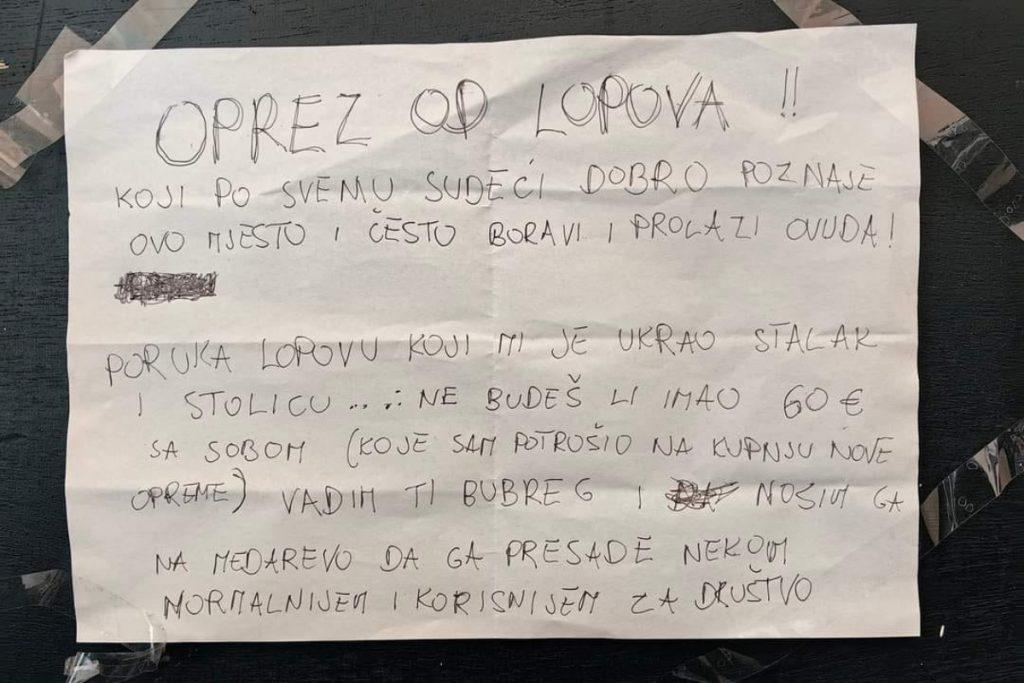 OPREZ OD LOPOVA !!
KOJI PO SVEMU SUDEĆI DOBRO POZNAJE
OVO MJESTO I ČESTO BORAVI I PROLAZI OVUDA!
PORUKA LOPOVU KOJI MI JE UKRAO STALAK
I STOLICU ... : NE BUDEŠ LI IMAO 60 €
SA SOBOM (KOJE SAM POTROŠIO NA KUPNJU NOVE
OPREME) VADIM TI BUBREG I NOSIM GA
NA MEDAREVO DA GA PRESADE NEKOM
NORMALNIJEM I KORISNIJEM ZA DRUŠTVO